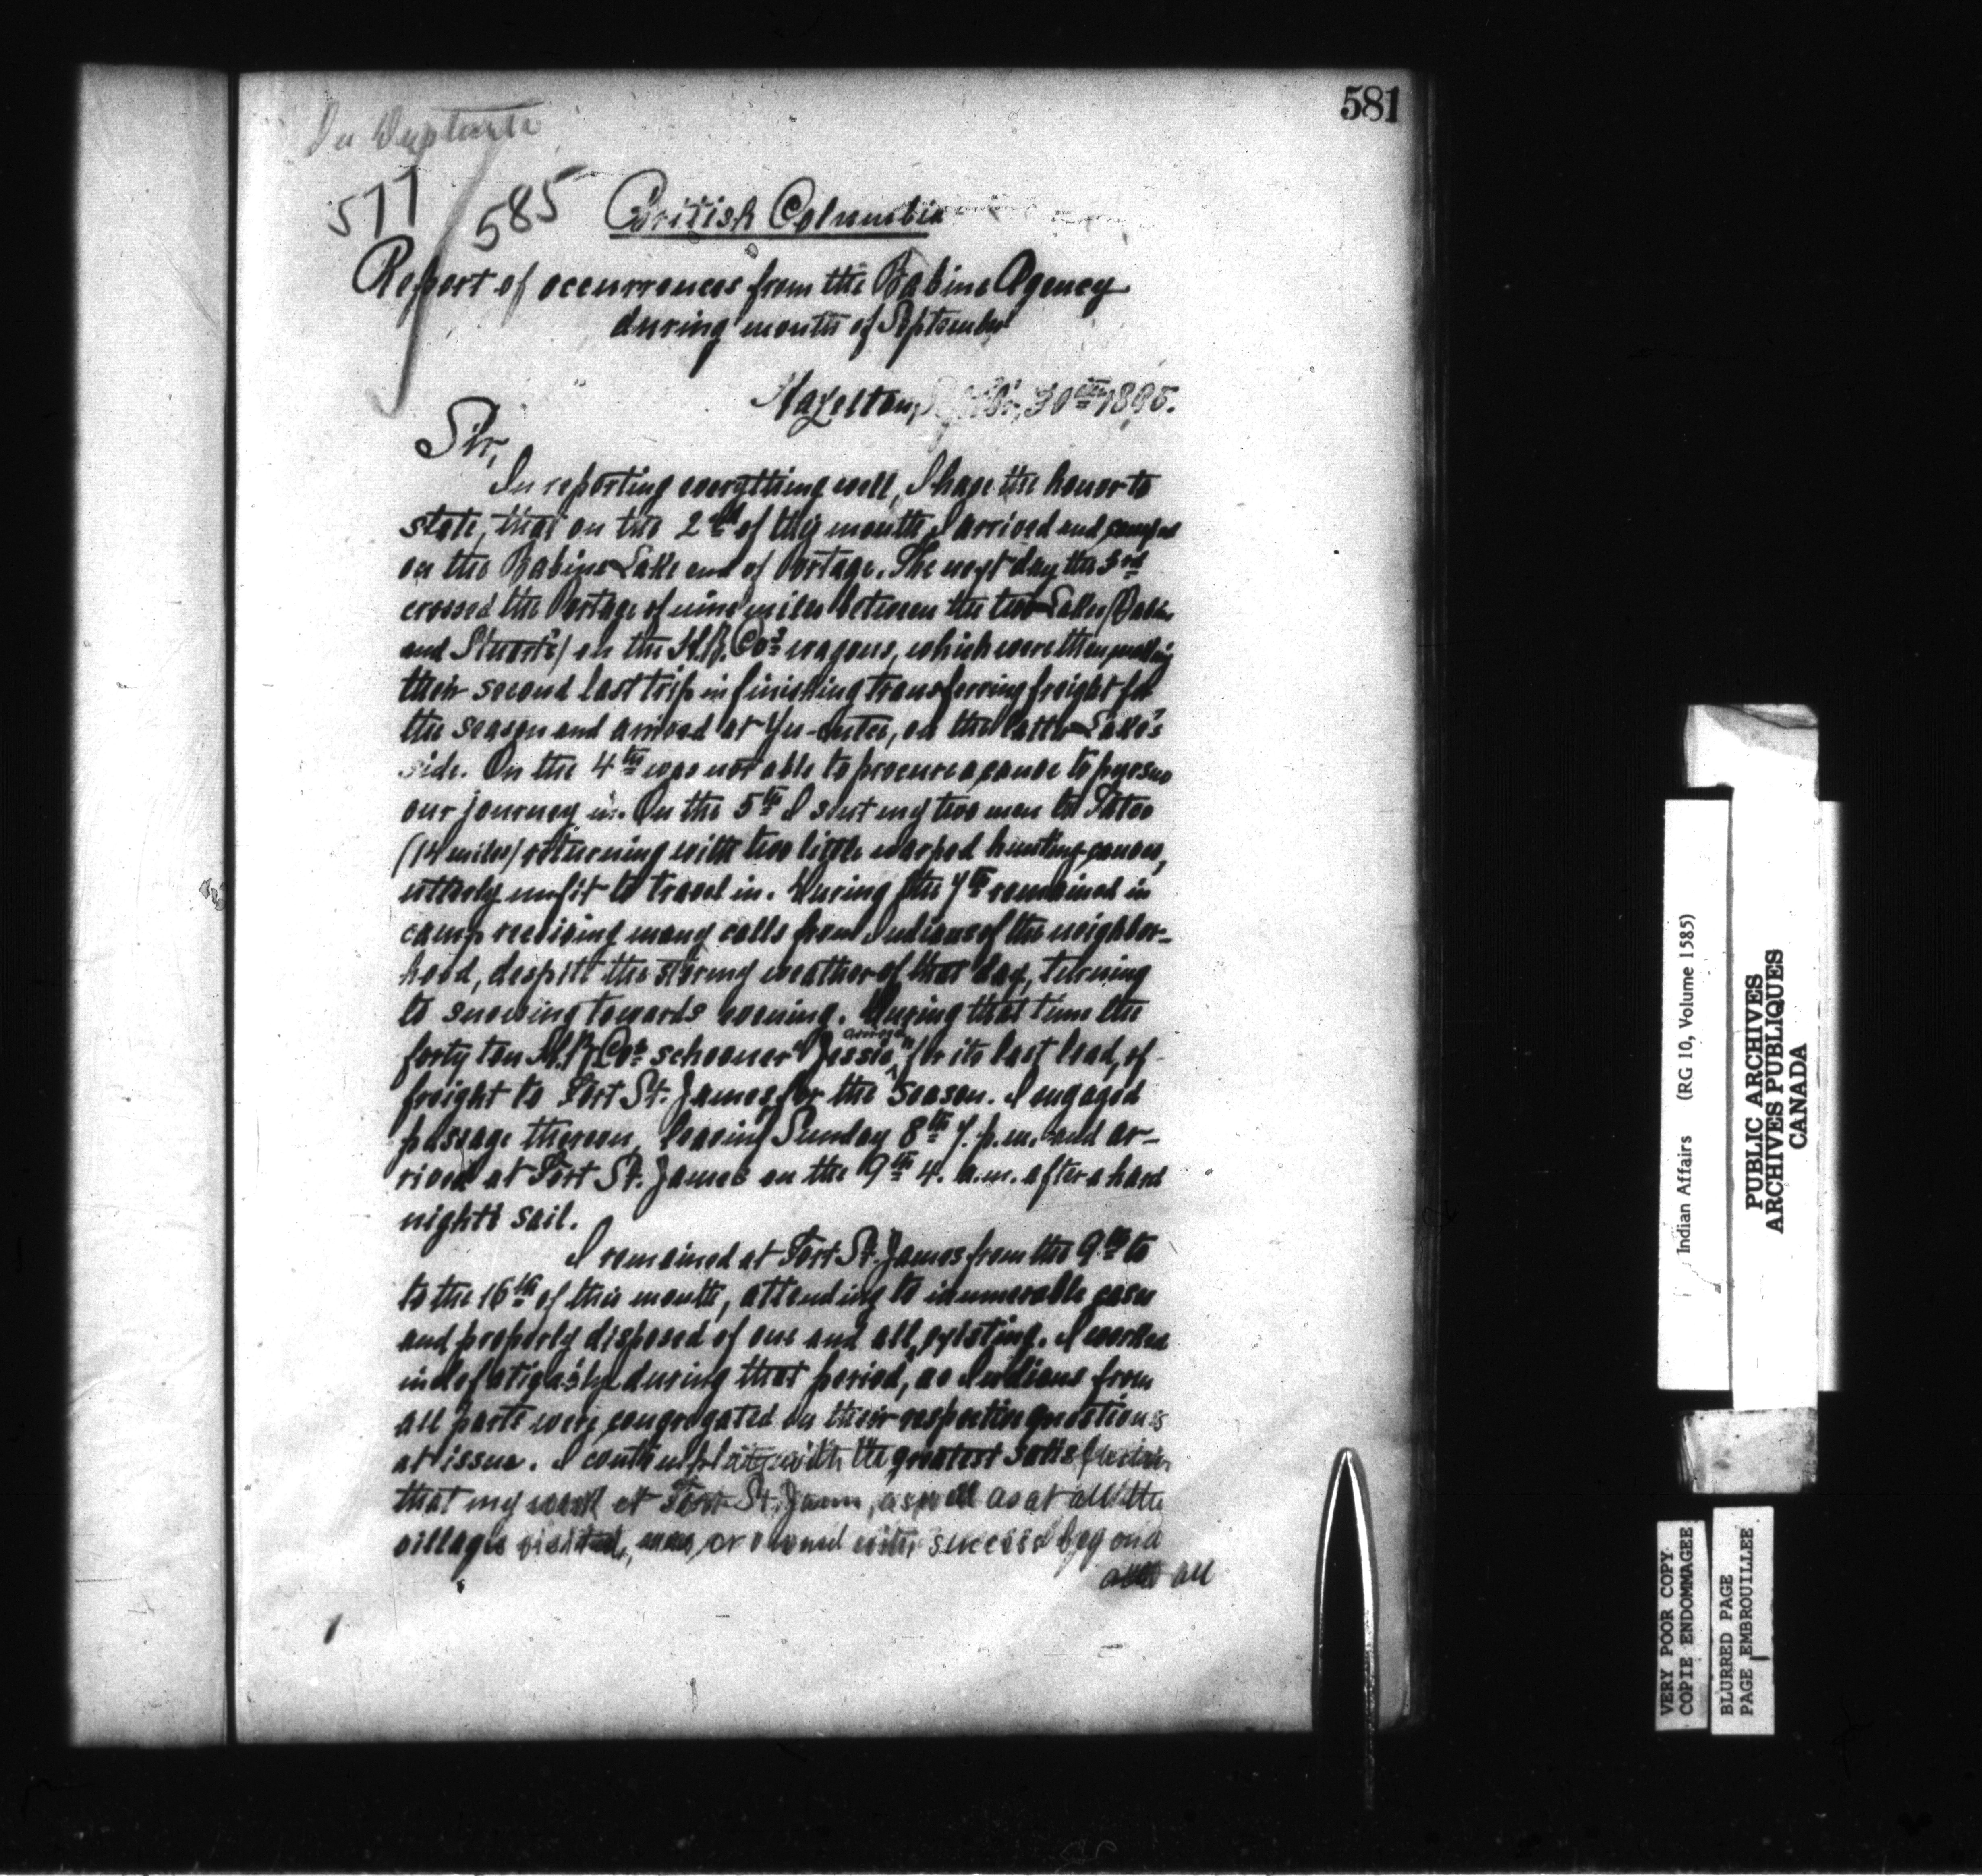 581
In Duplicate
577/585
British Columbia
Report of occurrences from the Babine Agency
during month of September
Hazelton, 30th 1895.
Sir,
In reporting everything well, I have the honor to
state, that on the 2nd of this month I arrived and camped
on the Babine Lake end of Portage. The next day the 3rd
crossed the Portage of nine miles between the two Lakes (Babine
and Stuart's) on the H.B. Co's wagons, which were then making
their second last trip in finishing transferring freight for
the season and arrived at Yu-cutce, on the latter Lake's
side. On the 4th was not able to procure a canoe to pursue
our journey in. On the 5th I sent my two men to Tatce
(14 miles) returning with two little warped hunting canoes,
utterly unfit to travel in. During the 7th remained in
camp receiving many calls from Indians of the neighbor-
hood, despite the stormy weather of that day, turning
to snowing towards evening. During that time the
forty ton H.B. Co's schooner "Jessie" arrived for its last load, of
freight to Fort St. James for the season. I engaged
passage thereon, leaving Sunday 8th 7. p.m. and ar-
rived at Fort St. James on the 9th 4. a.m. after a hard
night's sail.
I remained at Fort St. James from the 9th to
to the 16th of this month, attending to inumerable cases
and properly disposed of one and all, existing. I worked
indefatigably during that period, as Indians from
all parts were congregated on their respective questions
at issue. I contemplate with the greatest satisfaction
that my work at Fort St. James, as well as at all the
villages visited, was crowned with success beyond
all
Indian Affairs (RG 10, Volume 1585)
PUBLIC ARCHIVES
ARCHIVES PUBLIQUES
CANADA
VERY POOR COPY
COPIE ENDOMMAGEE
BLURRED PAGE
PAGE EMBROUILLEE